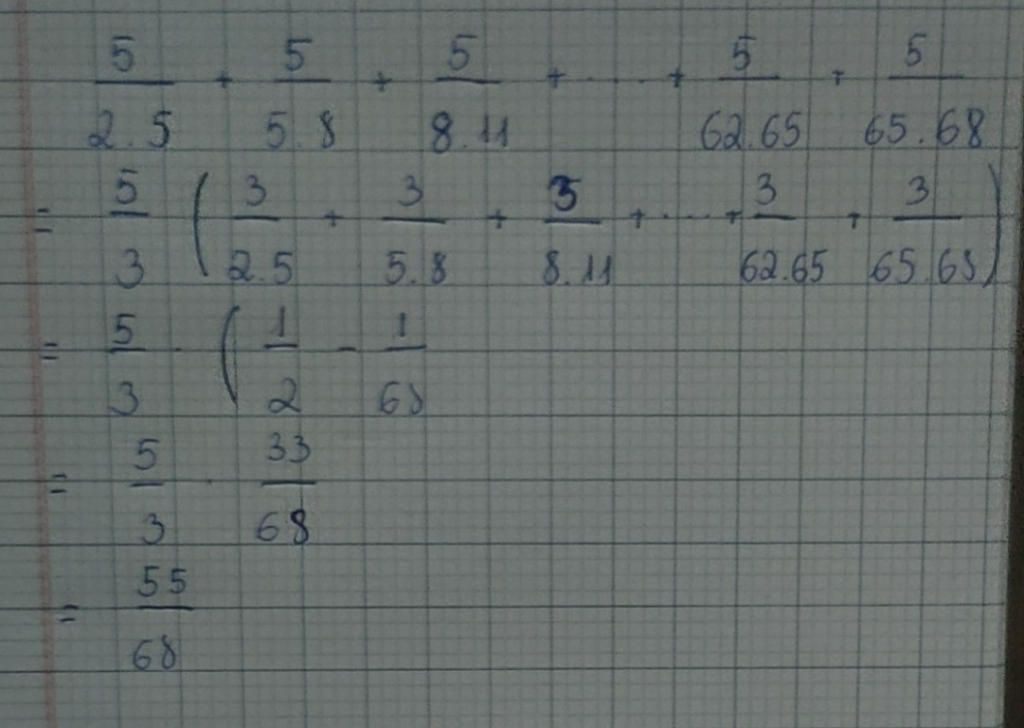 5/2.5 + 5/5.8 + 5/8.11 + ..... + 5/62.65 + 5/65.68
= 5/3 ( 3/2.5 + 3/5.8 + 3/8.11 + ..... + 3/62.65 + 3/65.68 )
= 5/3 . ( 1/2 - 1/68
= 5/3 . 33/68
= 55/68